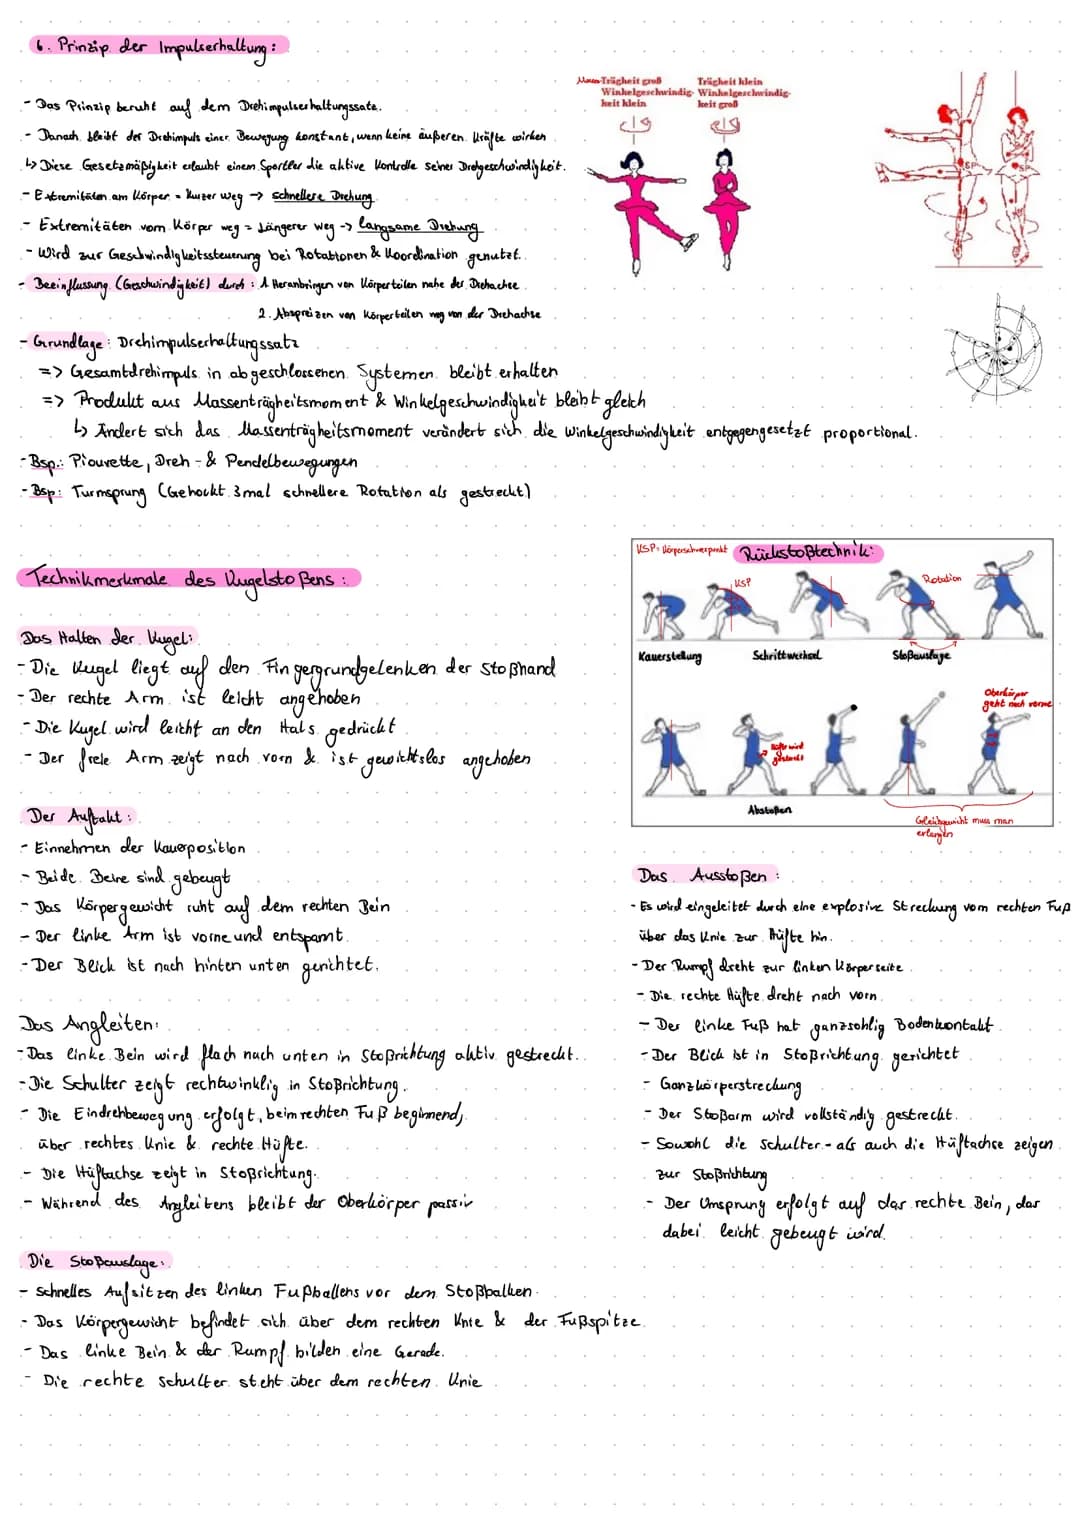 6. Prinzip der Impulserhaltung:
- Das Prinzip beruht auf dem Drehimpulserhaltungssatz.
- Danach bleibt der Drehimpuls einer Bewegung konstant, wenn keine äußeren Kräfte wirken
↳ Diese Gesetzmäßigkeit erlaubt einem Sportler die aktive Kontrolle seiner Drehgeschwindigkeit.
- Extremitäten am Körper = kurzer weg → schnellere Drehung
- Extremitäten vom Körper weg = Längerer weg -> langsame Drehung
- Wird zur Geschwindigkeitssteuerung bei Rotationen & Koordination genutzt.
- Beeinflussung (Geschwindigkeit) durch: 1. Heranbringen von Körperteilen nahe der Drehachse
2. Abspreizen von Körperteilen weg von der Drehachse
- Grundlage: Drehimpulserhaltungssatz
=> Gesamtdrehimpuls in abgeschlossenen Systemen bleibt erhalten
=> Produkt aus Massenträgheitsmoment & Winkelgeschwindigkeit bleibt gleich
↳ Ändert sich das Massenträgheitsmoment verändert sich die Winkelgeschwindigkeit entgegengesetzt proportional.
- Bsp.: Piouvette, Dreh- & Pendelbewegungen
- Bsp: Turmsprung (Gehockt 3mal schnellere Rotation als gestreckt)
Massen Trägheit groß
Winkelgeschwindig-
keit klein
Trägheit klein
Winkelgeschwindig-
keit groß
SP
SP
Technikmerkmale des Kugelstoßens:
Das Halten der Kugel:
- Die Kugel liegt auf den Fingergrundgelenken der Stoßhand
- Der rechte Arm ist leicht angehoben
- Die Kugel wird leicht an den Hals gedrückt
- Der freie Arm zeigt nach vorn & ist gewichtslos angehoben
Der Auftakt:
- Einnehmen der Kauerposition
- Beide Beine sind gebeugt
- Das Körpergewicht ruht auf dem rechten Bein
- Der linke Arm ist vorne und entspannt.
- Der Blick ist nach hinten unten gerichtet.
Das Angleiten:
- Das linke Bein wird flach nach unten in Stoßrichtung aktiv gestreckt.
- Die Schulter zeigt rechtwinklig in Stoßrichtung.
- Die Eindrehbewegung erfolgt, beim rechten Fuß beginnend,
über rechtes Knie & rechte Hüfte.
- Die Hüftachse zeigt in Stoßrichtung.
- Während des Angleitens bleibt der Oberkörper passiv
Die Stoßauslage:
- Schnelles Aufsitzen des linken Fußballens vor dem Stoßbalken.
- Das Körpergewicht befindet sich über dem rechten Knie & der Fußspitze.
- Das linke Bein & der Rumpf bilden eine Gerade.
- Die rechte Schulter steht über dem rechten Knie
KSP= Körperschwerpunkt
Rückstoßtechnik:
KSP
Rotation
Kauerstellung
Schrittwechsel
Stoßauslage
Hüfte wird
gestreckt
Oberkörper
geht nach vorne
Abstoßen
Gleichgewicht muss man
erlangen
Das Ausstoßen:
- Es wird eingeleitet durch eine explosive Streckung vom rechten Fuß
über das Knie zur Hüfte hin.
- Der Rumpf dreht zur linken Körperseite
- Die rechte Hüfte dreht nach vorn
- Der linke Fuß hat ganzsohlig Bodenkontakt
- Der Blick ist in Stoßrichtung gerichtet
- Ganzkörperstreckung
- Der Stoßarm wird vollständig gestreckt.
- Sowohl die Schulter- als auch die Hüftachse zeigen
zur Stoßrichtung
- Der Umsprung erfolgt auf das rechte Bein, das
dabei leicht gebeugt wird.